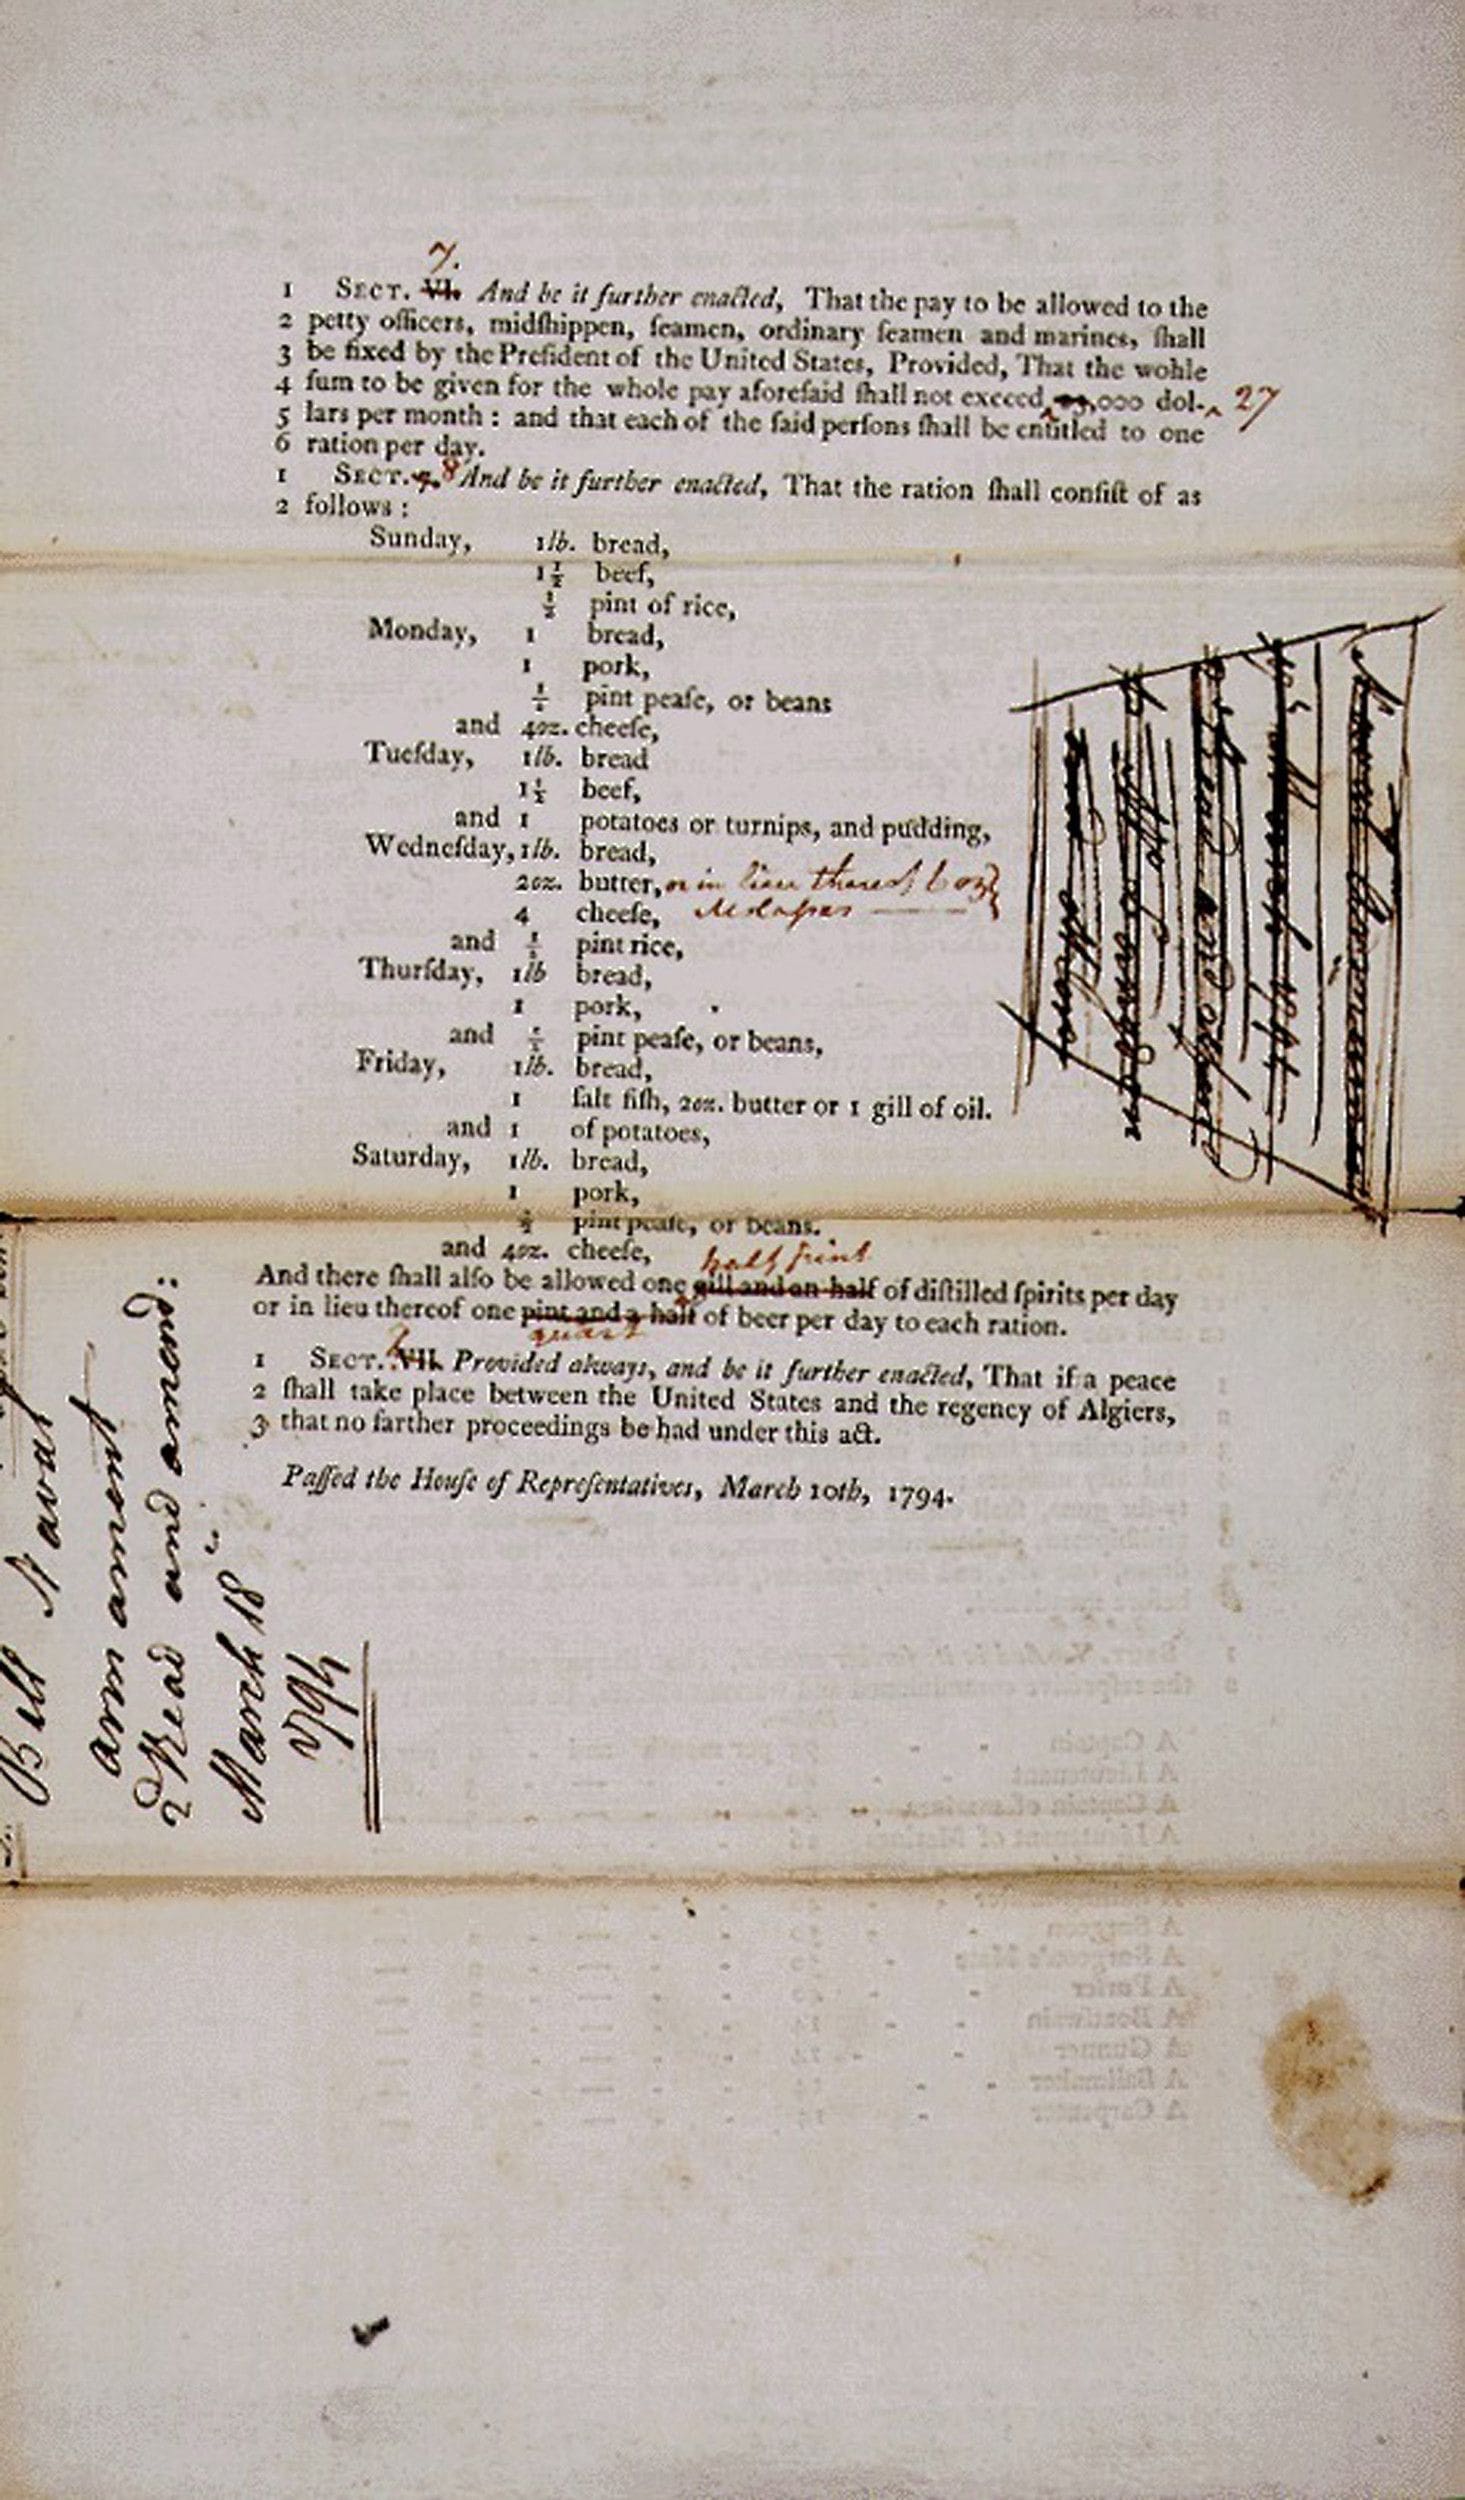 7.
1 SECT. VI. And be it further enacted, That the pay to be allowed to the
2 petty officers, midſhippen, ſeamen, ordinary ſeamen and marines, ſhall
3 be fixed by the Preſident of the United States, Provided, That the wohle
4 ſum to be given for the whole pay aforeſaid ſhall not exceed ,000 dol- 27
5 lars per month : and that each of the ſaid perſons ſhall be entitled to one
6 ration per day.
1 SECT. 7. 8 And be it further enacted, That the ration ſhall conſiſt of as
2 follows :
Sunday, 1lb. bread,
1½ beef,
½ pint of rice,
Monday, 1 bread,
1 pork,
½ pint peaſe, or beans
and 4oz. cheeſe,
Tueſday, 1lb. bread
1½ beef,
and 1 potatoes or turnips, and pudding,
Wedneſday, 1lb. bread,
2oz. butter, or in lieu thereof 6 oz
4 cheeſe, Molasses
and ½ pint rice,
Thurſday, 1lb bread,
1 pork,
and ½ pint peaſe, or beans,
Friday, 1lb. bread,
1 ſalt fiſh, 2oz. butter or 1 gill of oil.
and 1 of potatoes,
Saturday, 1lb. bread,
1 pork,
½ pint peaſe, or beans.
and 4oz. cheeſe,
half pint
And there ſhall alſo be allowed one gill and an half of diſtilled ſpirits per day
or in lieu thereof one pint and a half of beer per day to each ration.
quart
1 SECT. VII. Provided always, and be it further enacted, That if a peace
2 ſhall take place between the United States and the regency of Algiers,
3 that no farther proceedings be had under this act.
Paſſed the Houſe of Repreſentatives, March 10th, 1794.
Bill Naval
armament
2 Read and amend:
March 18
1794